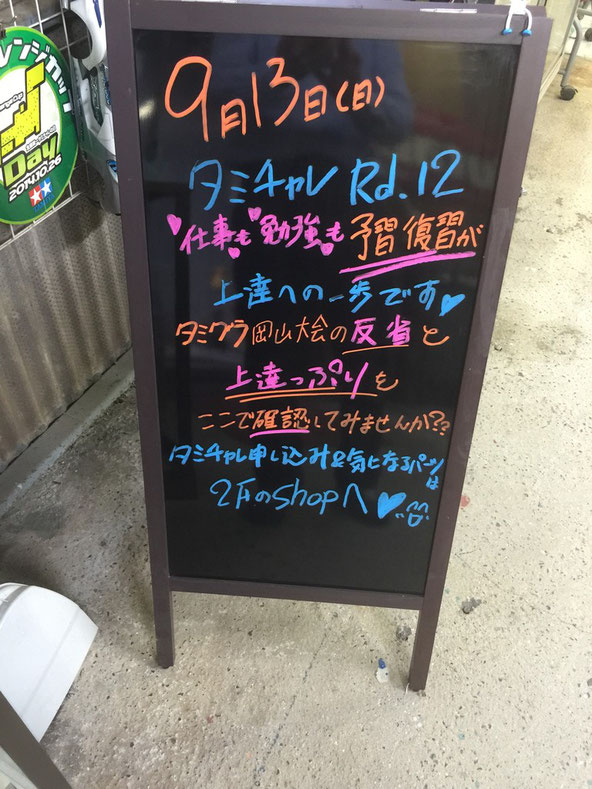 9月13日(日)
タミチャレ Rd.12
仕事も勉強も予習復習が
上達への一歩です
タミグラ岡山大会の反省と
上達っぷりを
ここで確認してみませんか??
タミチャレ申し込み&気になるパーツは
2FのShopへ
レンジカップ
Day
2014.10.26